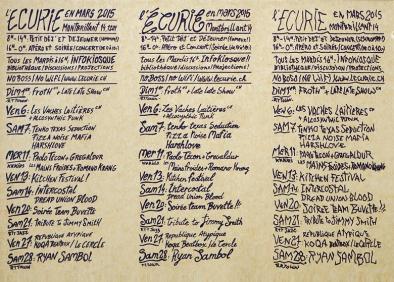 L'ECURIE EN MARS 2015
MONTBRILLANT 14, 1201
8H-14H PETIT DEJ' ET DÉJEUNER
16H-0H APÉRO ET SOIRÉES/CONCERT
TOUS LES MARDIS 16H INFOKIOSQUE
BIBLIOTHÈQUE/DISCUSSIONS/PROJECTIONS
NO BOSS! NO WIFI! WWW.LECURIE.CH
DIM 1ER FROTH "LATE LATE SHOW"
VEN 6: LES VACHES LAITIÈRES
+ ALCOSYNTHIC PUNK
SAM 7: TENKO TEXAS SEDUCTION
PIZZA NOISE MAFIA
HARSHLOVE
MER 11: PAOLO TECON + GREGALDUR
LES MAINS FROIDES + ROMANO KRANG
VEN 13: KITCHEN FESTIVAL!
SAM 14: INTERCOSTAL
DREAD UNION BLOOD
VEN 20: SOIRÉE TEAM BUVETTE!!
SAM 21: TRIBUTE TO JIMMY SMITH
VEN 27: REPUBLIQUE ATYPIQUE
KOQA BEATBOX/LE CERCLE
SAM 28: RYAN SAMBOL
L'ECURIE EN MARS 2015
Montbrillant 14
8H-14H Petit Déj' et Déjeuner
16H-0H Apéro et Concert/Soirée
Tous les Mardis 16H Infokiosque!!
bibliothèque/discussions/Projections!
NO BOSS! NO WIFI! www.lecurie.ch
Dim 1er Froth "Late Late Show"
Ven 6: Les Vaches Laitières
+ Alcosynthic Punk
Sam 7: Tenko Texas Seduction
Pizza Noise Mafia
Harshlove
Mer 11: Paolo Tecon + Gregaldur
Les Mains froides + Romano Krang
Ven 13: Kitchen Festival
Sam 14: Intercostal
Dread Union Blood
Ven 20: Soirée Team Buvette!!
Sam 21: Tribute to Jimmy Smith
Ven 27: Republique Atypique
Koqa Beatbox/Le Cercle
Sam 28: Ryan Sambol
L'ECURIE EN MARS 2015
MONTBRILLANT 14
8H-14H PETIT DEJ' ET DÉJEUNER
16H-0H APÉRO ET SOIRÉES/CONCERTS
TOUS LES MARDIS 16H INFOKIOSQUE
BIBLIOTHÈQUE/DISCUSSIONS/PROJECTIONS
NO BOSS! NO WIFI! WWW.LECURIE.CH
DIM 1ER FROTH "LATE LATE SHOW"
VEN 6: LES VACHES LAITIÈRES
+ ALCOSYNTHIC PUNK
SAM 7: TENKO TEXAS SEDUCTION
PIZZA NOISE MAFIA
HARSHLOVE
MER 11: PAOLO TECON + GREGALDUR
LES MAINS FROIDES + ROMANO KRANG
VEN 13: KITCHEN FESTIVAL
SAM 14: INTERCOSTAL
DREAD UNION BLOOD
VEN 20: SOIREE TEAM BUVETTE!!
SAM 21: TRIBUTE TO JIMMY SMITH
VEN 27: REPUBLIQUE ATYPIQUE
KOQA BEATBOX/LE CERCLE
SAM 28: RYAN SAMBOL